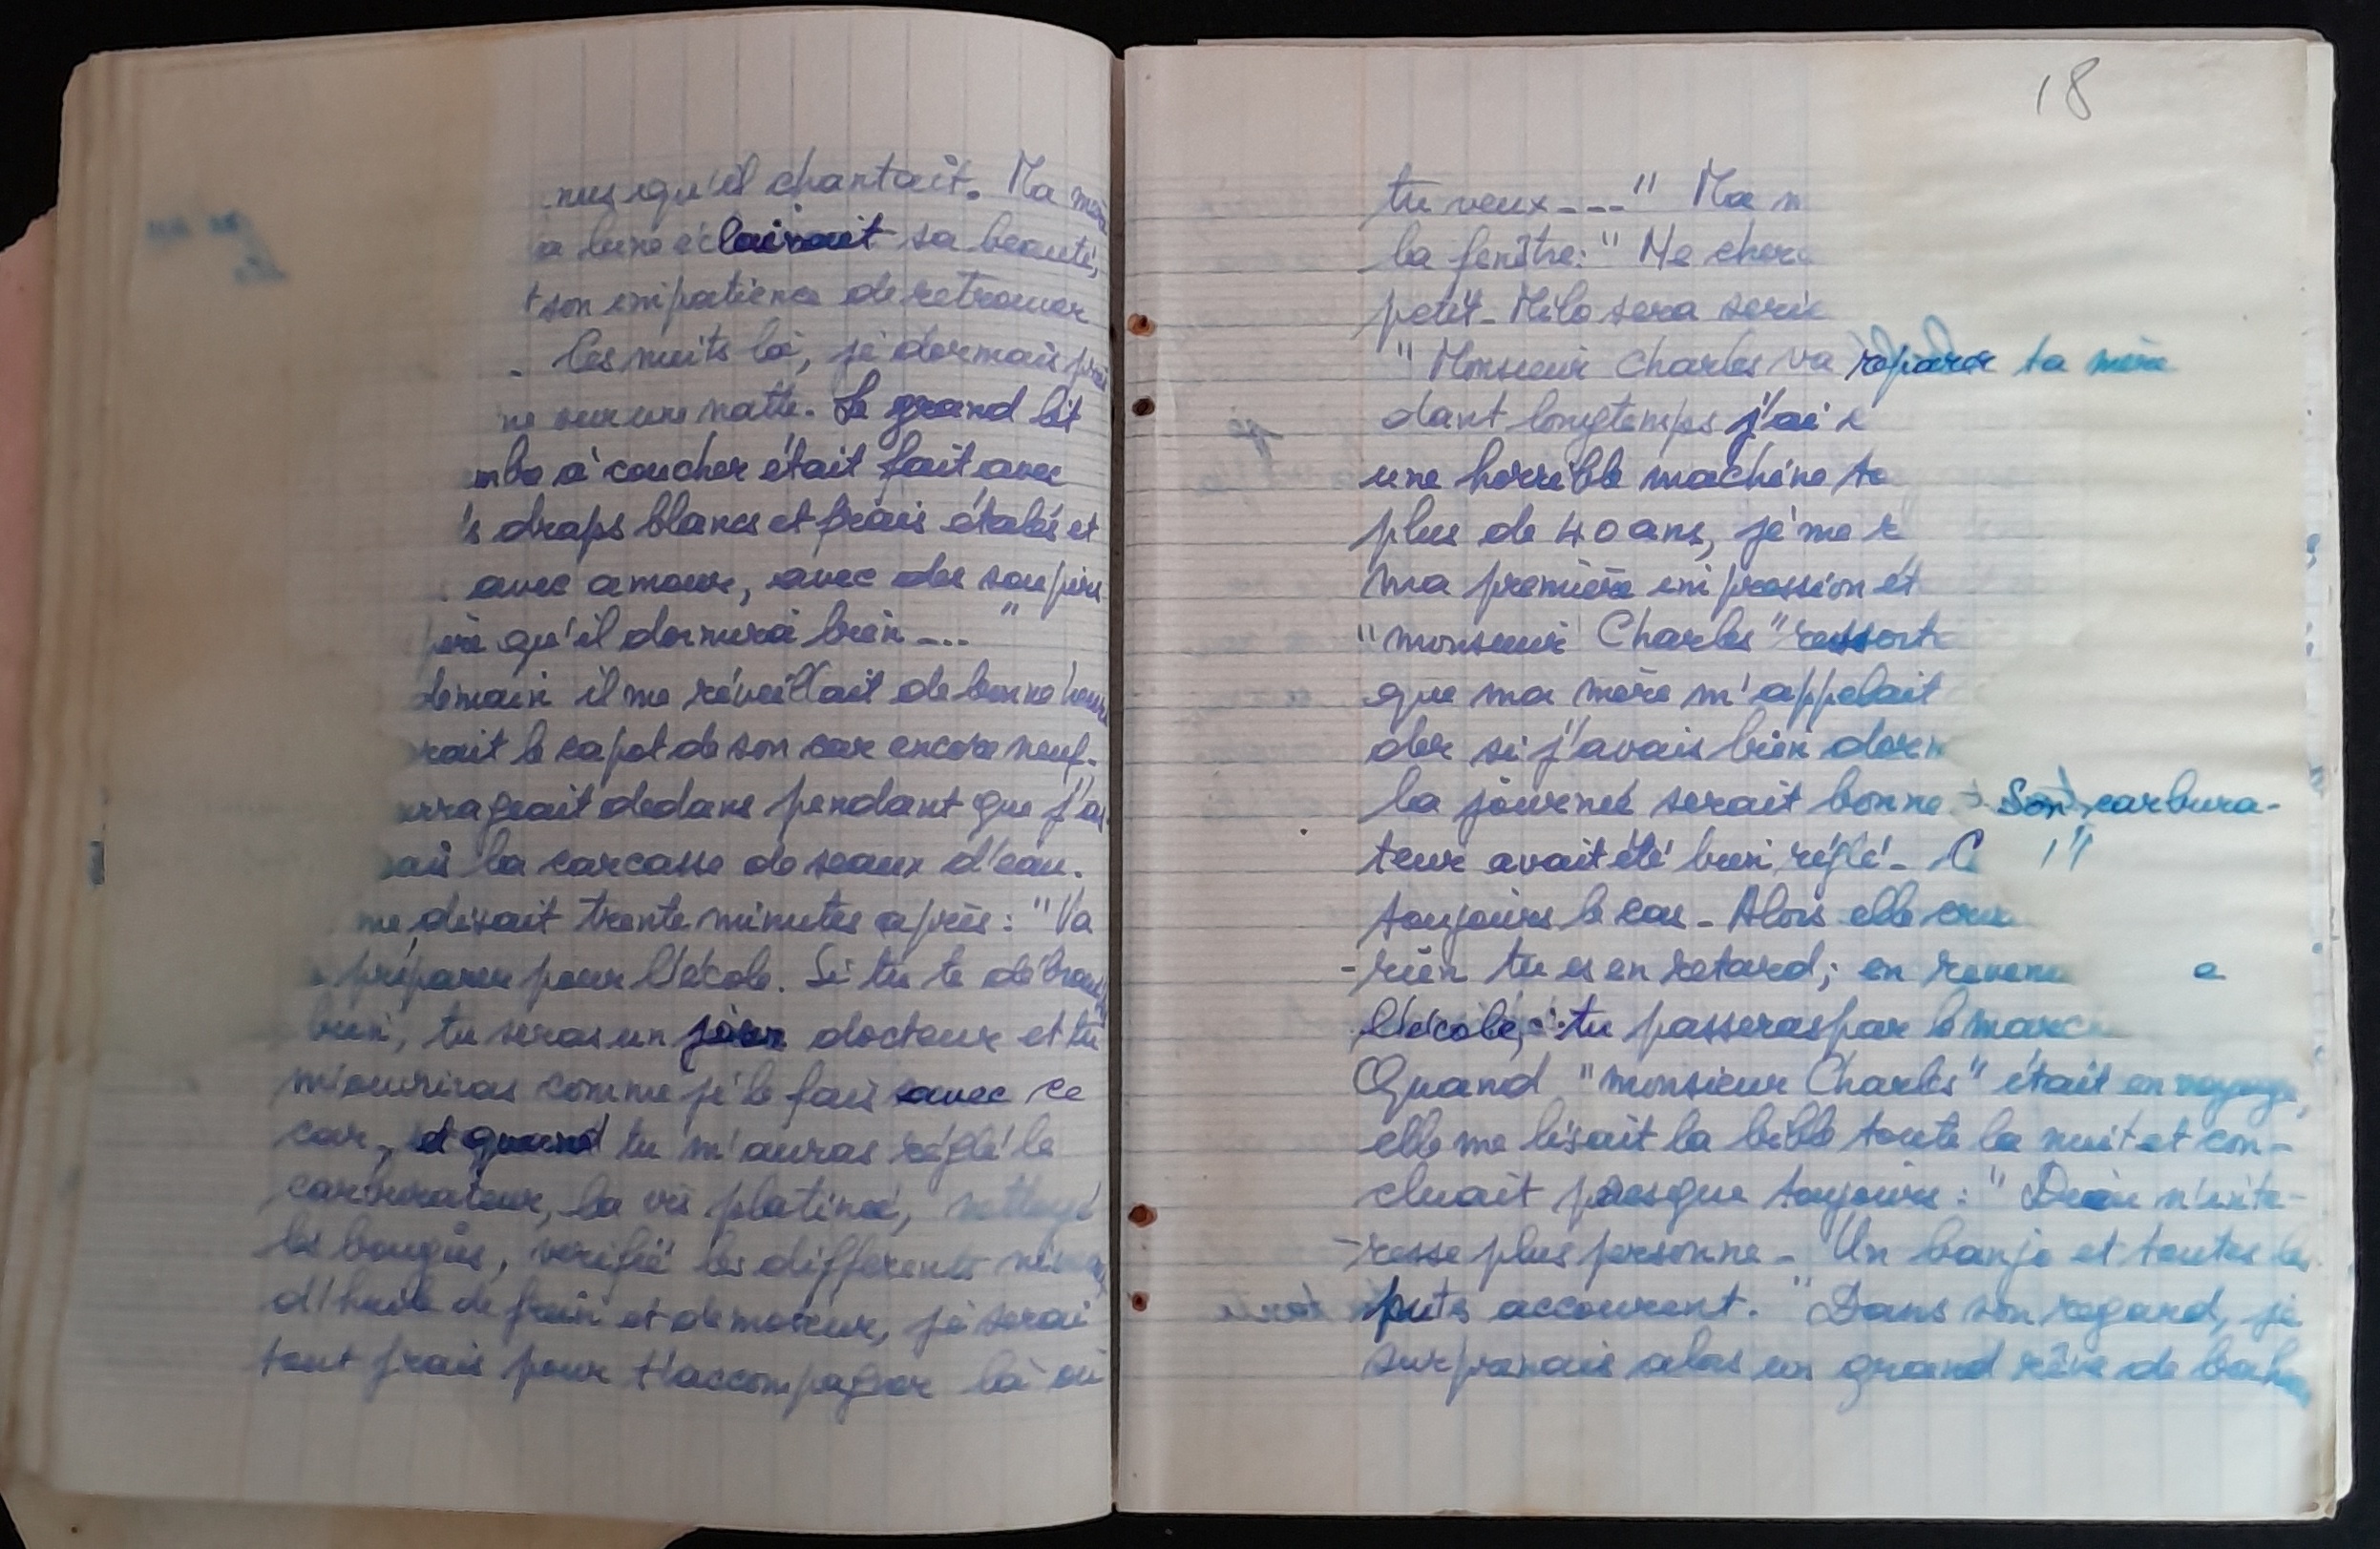 qu'il chantait. Ma mère
lune éclairait sa beauté,
son impatience de retrouver
Ces nuits là, je dormais
sur une natte. Le grand lit
à coucher était fait avec
draps blancs et frais étalés et
avec amour, avec des soupirs
qu'il dormira bien ---"
demain il me réveillait de bonne heure
rait le capot de son car encore neuf.
rrageait dedans pendant que j'
la carcasse de seaux d'eau.
me disait trente minutes après : "Va
préparer pour l'école. Si tu te
bien, tu seras un jour docteur et tu
m'ouvriras comme je le fais avec ce
car, et quand tu m'auras réglé le
carburateur, la vis platinée, nettoyé
les bougies, verifié les différents niveaux
d'huile de frein et de moteur, je serai
tout frais pour t'accompagner là où
18
tu veux ----" Ma
la fenêtre : " Ne
petit - Milo sera
" Monsieur Charles va réparer ta mère
dant longtemps j'ai
une horrible machine
plus de 40 ans, je me
ma première impression
"monsieur Charles"
que ma mère m'appelait
der si j'avais bien
la journée serait bonne - Son carbura-
teur avait été bien réglé - C
toujours le cas - Alors elle
-rien tu es en retard ; en
l'école, tu passeras par le
Quand "monsieur Charles" était en voyage,
elle me lisait la bible toute la nuit et con-
cluait presque toujours : " Dieu n'inté-
-resse plus personne - Un banjo et toutes les
putes accourent. " Dans son regard, je
surprenais alors un grand rêve de